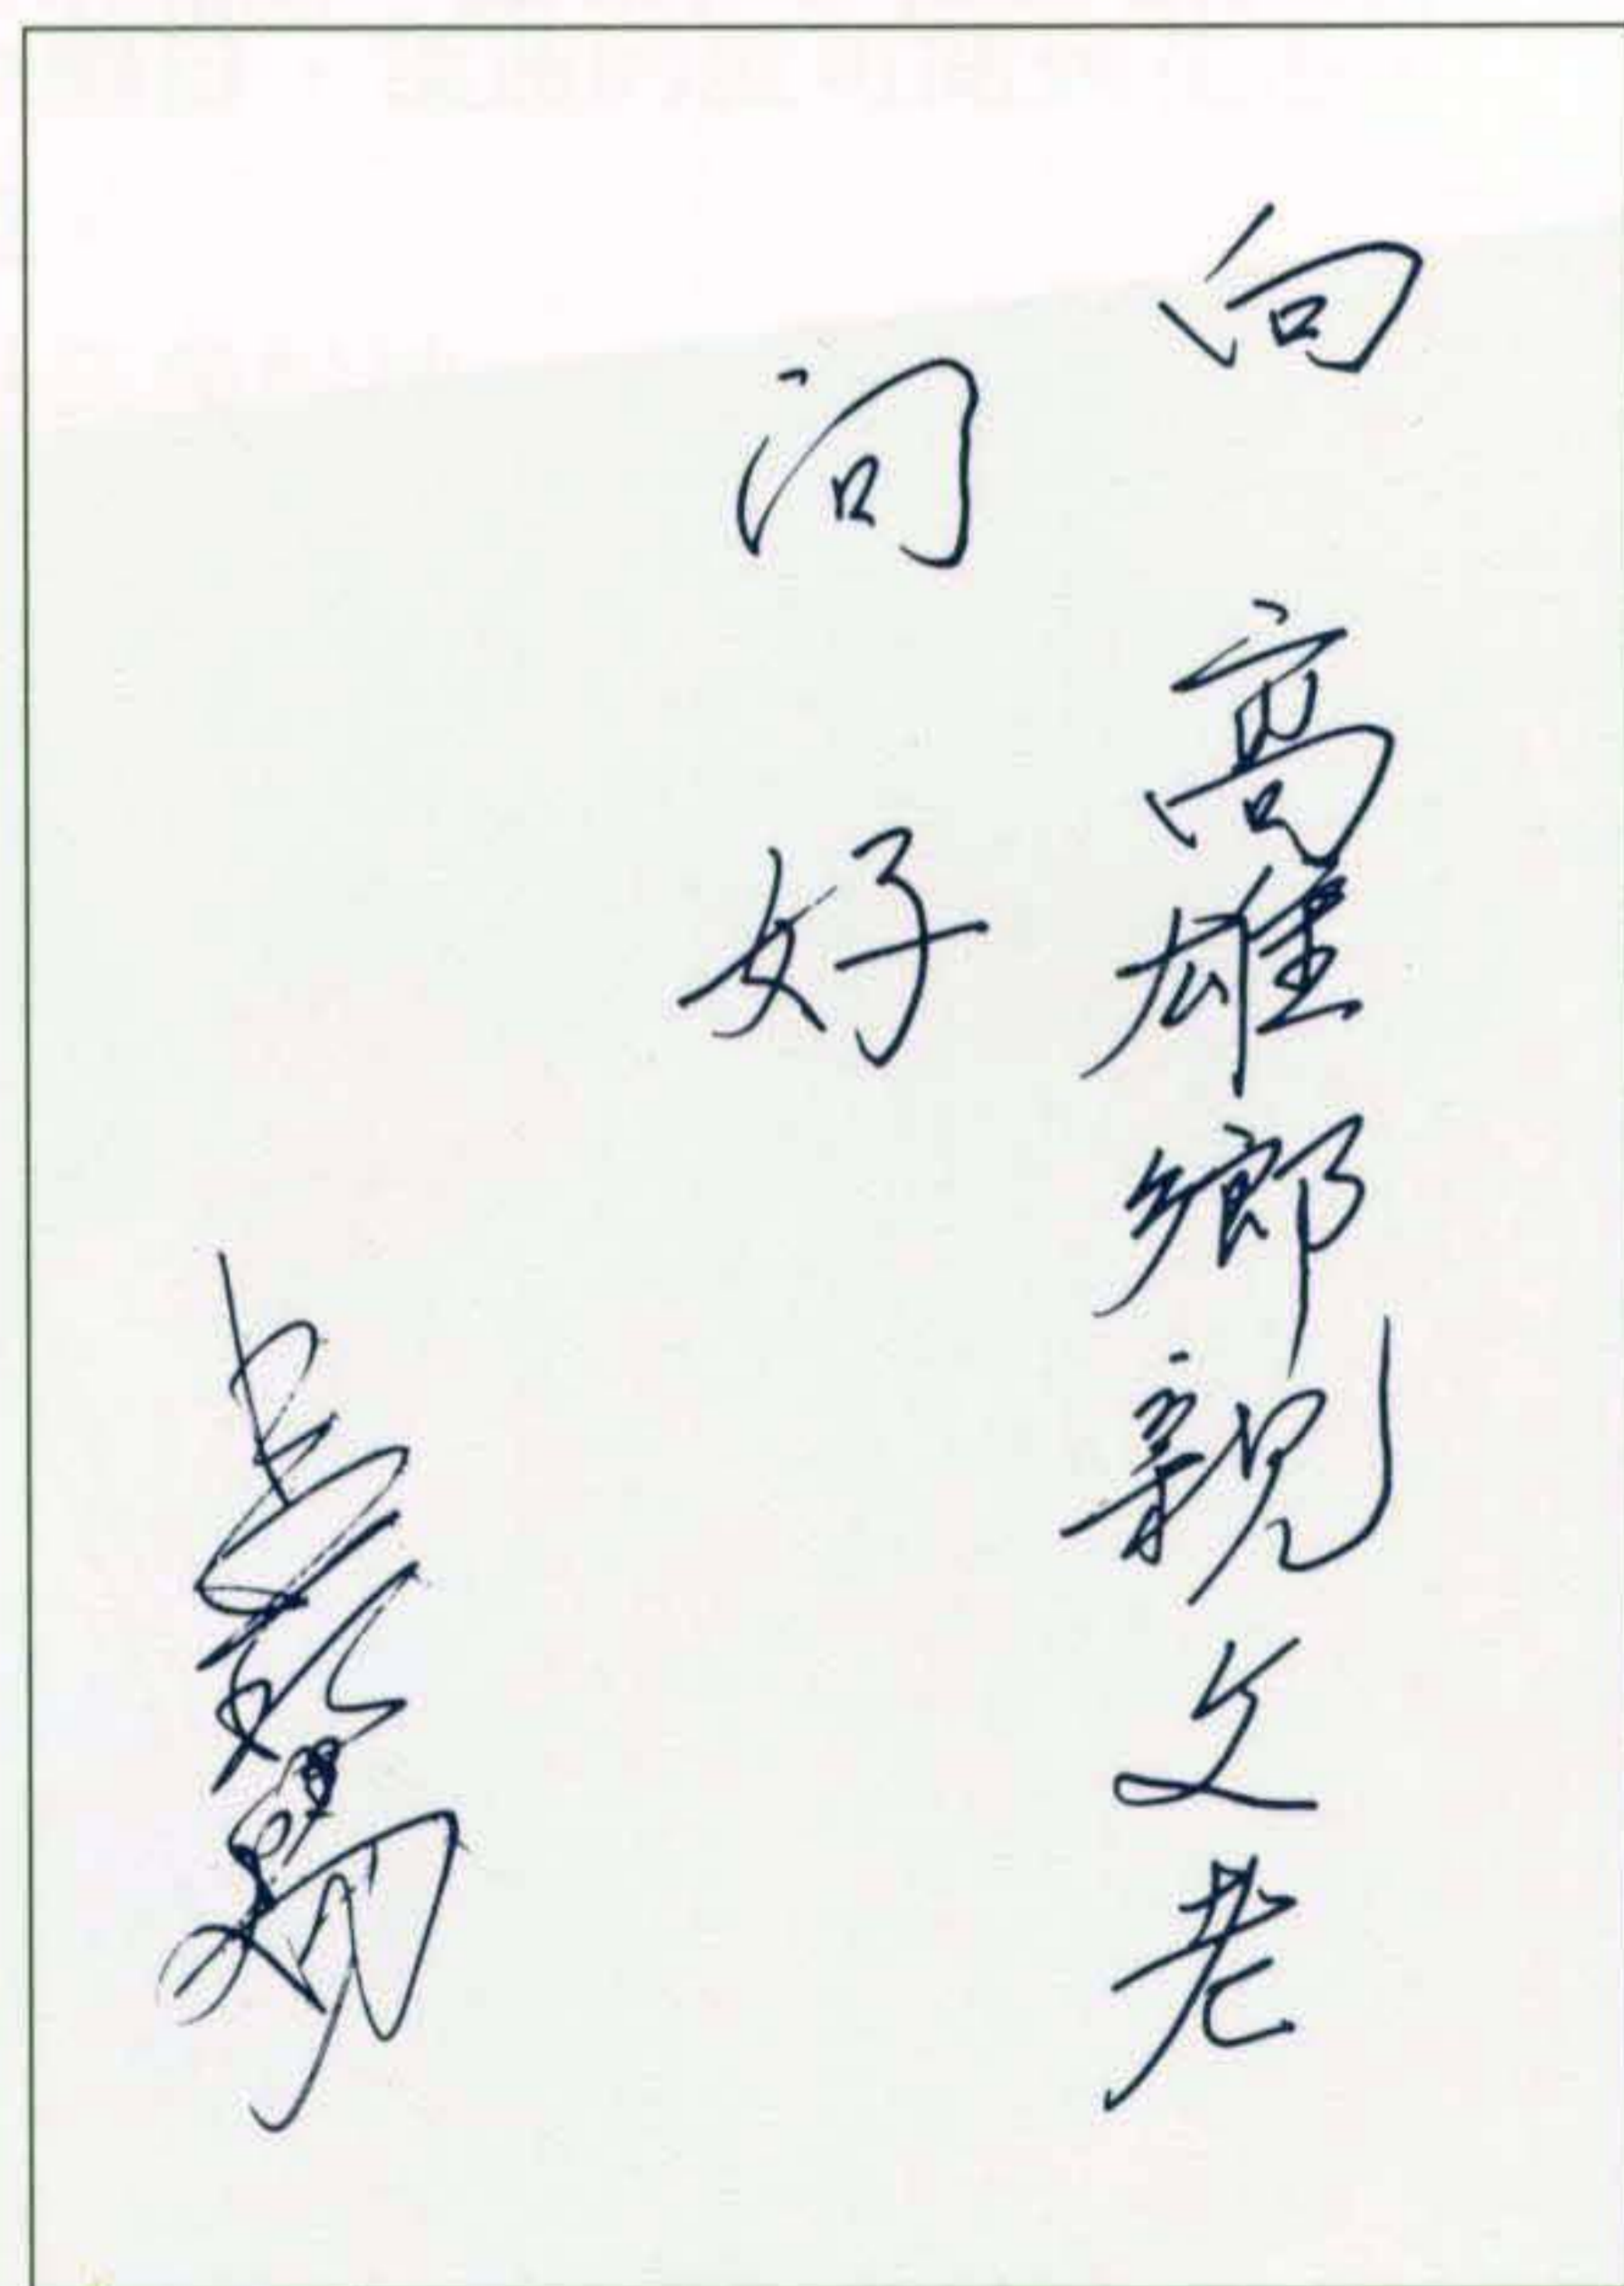 向高雄鄉親父老
问好